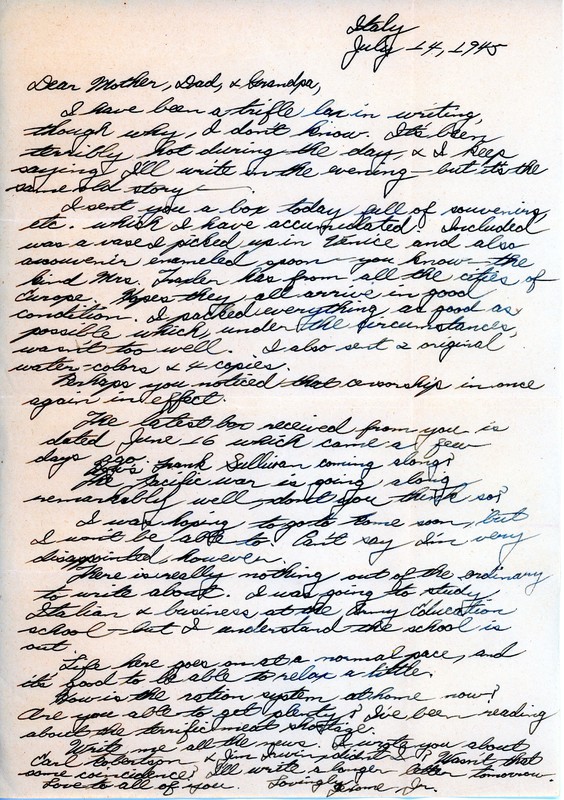 Italy
July 14, 1945
Dear Mother, Dad, & Grandpa,
I have been a trifle lax in writing,
though why, I don't know. It's been
terribly hot during the day, & I keep
saying I'll write in the evening - but it's the
same old story -
I sent you a box today full of souvenirs,
etc. which I have accumulated. Included
was a vase I picked up in Venice and also
a souvenir enameled spoon - you know - the
kind Mrs. has from all the cities of
Europe. Hopes they all arrive in good
condition. I packed everything as good as
possible which, under the circumstances,
wasn't too well. I also sent 2 original
water-colors & 4 copies.
Perhaps you noticed that censorship in once
again in effect.
The latest box received from you is
dated June 16 which came a few
days ago.
How's Frank Sullivan coming along?
The Pacific war is going along
remarkably well - don't you think so?
I was hoping to go to Rome soon, but
I won't be able to. Can't say I'm very
disappointed, however.
There is really nothing out of the ordinary
to write about. I was going to study
Italian & business at the Army Education
school - but I understand the school is
out.
Life here goes on at a normal pace, and
it's good to be able to relax a little.
How is the ration system at home now?
Are you able to get plenty? I've been reading
about the terrific meat shortage.
Write me all the news. I wrote you about
Carl Robertson & Jim Irwin didn't I? Wasn't that
some coincidence? I'll write a longer letter tomorrow.
Love to all of you. Lovingly, Jerome Jr.